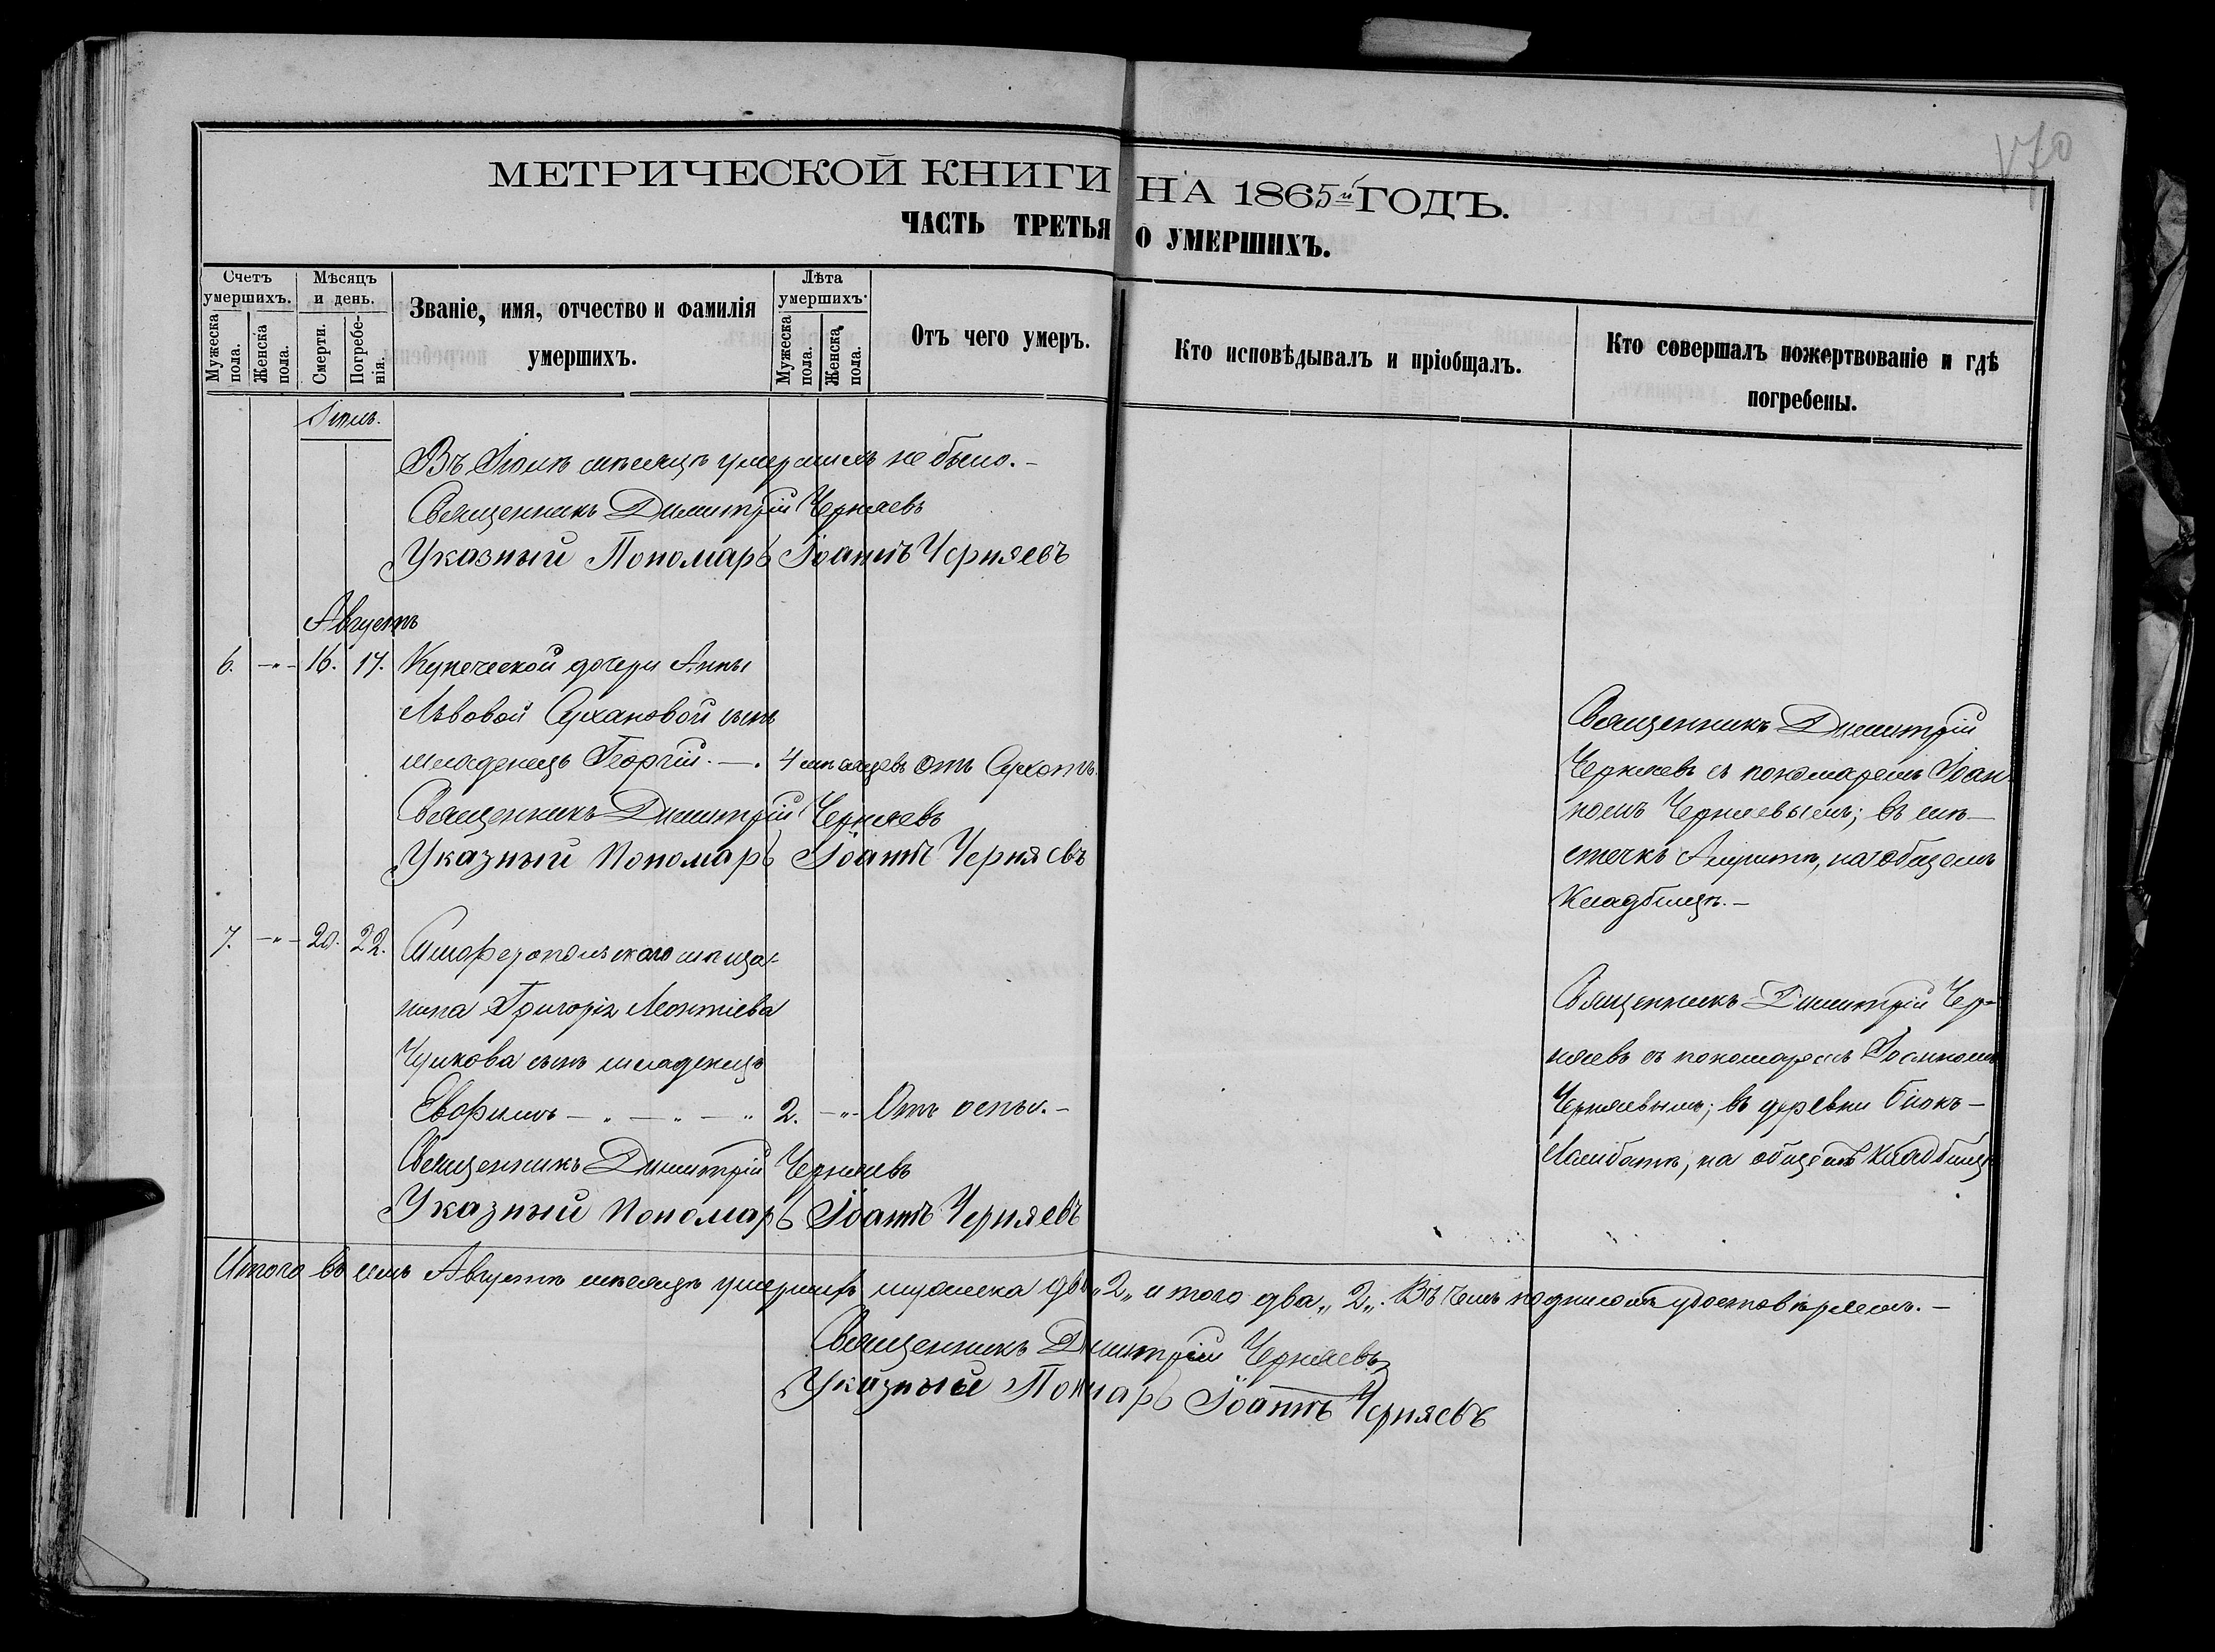 170
МЕТРИЧЕСКОЙ КНИГИ НА 1865й ГОДЪ.
ЧАСТЬ ТРЕТЬЯ О УМЕРШИХЪ.
Счетъ умершихъ.
Мужеска пола.
Женска пола.
Мѣсяцъ и день.
Смерти.
Погребенія.
Званіе, имя, отчество и фамилія
умершихъ.
Лѣта умершихъ.
Мужеска пола.
Женска пола.
Отъ чего умеръ.
Кто исповѣдывалъ и пріобщалъ.
Кто совершалъ пожертвованіе и гдѣ
погребены.
Въ мѣсяцѣ умершихъ не было.-
Священникъ Димитрій Черняевъ
Указный Пономарь Іоаннъ Черняевъ
Августъ
6. -"- 16. 17. Купеческой дочери Анны
Львовой Сухановой сынъ
младенецъ Георгій. -. 4 мѣсяцевъ Отъ Сухотъ.
Священникъ Димитрій Черняевъ
Указный Пономарь Іоаннъ Черняевъ
Священникъ Димитрій
Черняевъ съ пономаремъ Іоан
номъ Черняевымъ; въ мѣ-
стечкѣ на общемъ
Кладбищѣ.-
7. -"- 20. 22. Симферопольскаго мѣща-
нина Григорія Леонтіева
сынъ младенецъ
Евфимъ - " - " - " 2. -"- Отъ оспы.-
Священникъ Димитрій Черняевъ
Указный Пономарь Іоаннъ Черняевъ
Священникъ Димитрій Чер-
няевъ съ пономаремъ Іоанномъ
Черняевымъ; въ деревни Біюкъ-
Ламбатѣ, на общемъ кладбищѣ
Итого въ семъ Августѣ мѣсяцѣ умершихъ мужеска два „2„ итого два „2„. Въ чемъ подписомъ удостовѣряемъ.-
Священникъ Димитрій Черняевъ
Указный Іоаннъ Черняевъ